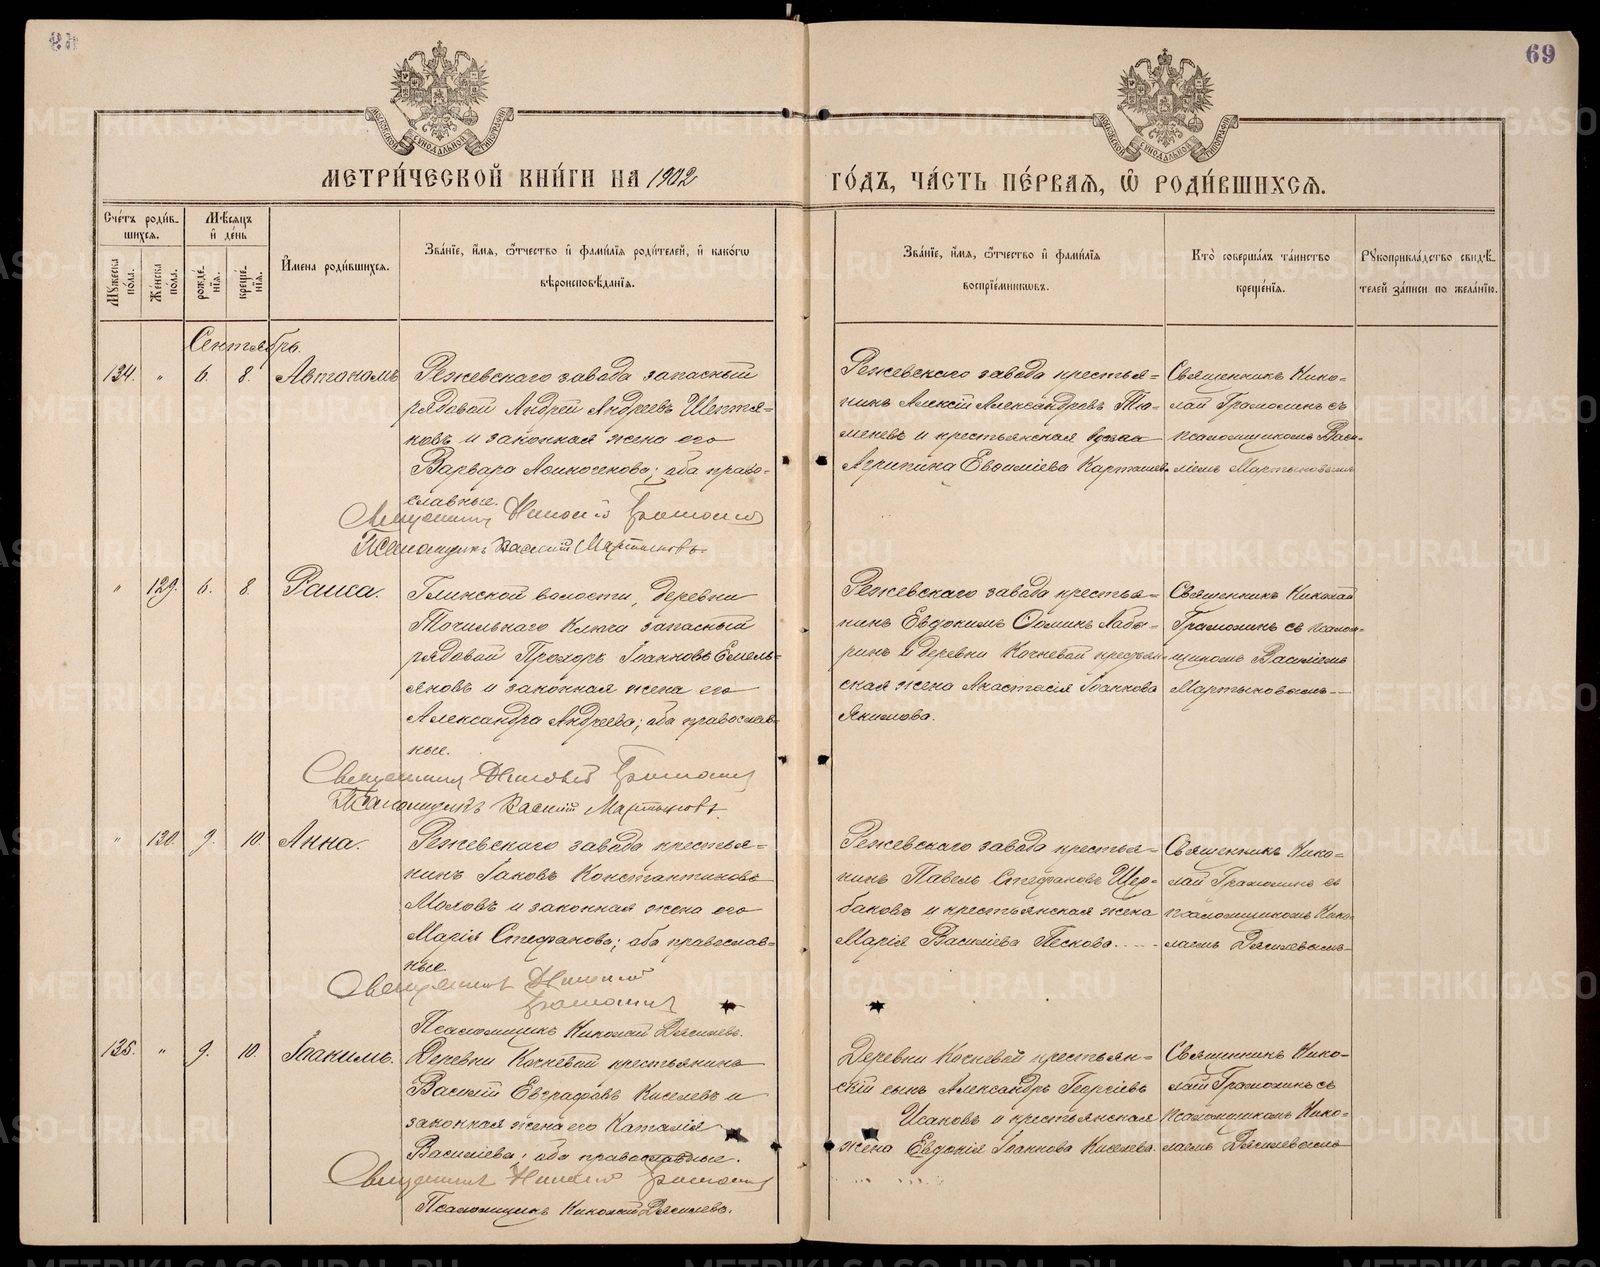 69
МОСКОВСКОЙ СУНОДАЛЬНОЙ ТИПОГРАФІИ
МОСКОВСКОЙ СУНОДАЛЬНОЙ ТИПОГРАФІИ
МЕТРИ́ЧЕСКОЙ КНИ́ГИ НА 1902
ГО́ДЪ, ЧА́СТЬ ПЕ́РВАѦ, Ѡ҆ РОДИ́ВШИХСѦ.
Сче́тъ роди́в-
шихсѧ.
Мꙋжеска по́ла.
Же́нска по́ла.
Мѣ́сѧцъ
и҆ де́нь
рожде́-
нїѧ.
креще́-
нїѧ.
И҆мена роди́вшихсѧ.
Зва́нїе, и҆́мѧ, ѻ҆́тчество и҆ фами́лїѧ роди́телей, и҆ како́гѡ
вѣроисповѣ́данїѧ.
Зва́нїе, и҆́мѧ, ѻ҆́тчество и҆ фами́лїѧ
воспрїе́мникѡвъ.
Кто̀ соверша́лъ та́инство
креще́нїѧ.
Рꙋкоприкла́дство свидѣ́-
телей за́писи по жела́нїю.
Сентябрь.
134. " 6. 8. Автономъ
Режевскаго завода запасный
рядовой Андрей Андреевъ Шептя-
ковъ и законная жена его
Варвара Афиногенова; оба право-
славные.
Священникъ Николай Грамолинъ
Псаломщикъ Василій Мартыновъ.
Режевскаго завода крестья-
нинъ Алексій Александровъ Тю-
меневъ и крестьянская
Агрипина Евфиміева Карташев.
Священникъ Нико-
лай Грамолинъ съ
псаломщикомъ Васи-
ліемъ Мартыновымъ
" 129. 6. 8. Раиса.
Глинской волости, деревни
Точильнаго Ключа запасный
рядовой Прохоръ Іоанновъ Емель-
яновъ и законная жена его
Александра Андреева; оба православ-
ные.
Священникъ Николай Грамолинъ
Псаломщикъ Василій Мартыновъ.
Режевскаго завода крестья-
нинъ Евдокимъ Ѳоминъ Лабу-
ринъ и деревни Кочневой крестьян-
ская жена Анастасія Іоаннова
Якимова.
Священникъ Николай
Грамолинъ съ псалом-
щикомъ Василіемъ
Мартыновымъ.
" 130. 9. 10. Анна.
Режевскаго завода крестья-
нинъ Іаковъ Константиновъ
Моховъ и законная жена его
Марія Стефанова; оба православ-
ные.
Священникъ Николай
Грамолинъ
Псаломщикъ Николай Дягилевъ.
Режевскаго завода крестья-
нинъ Павелъ Стефановъ Щер-
баковъ и крестьянская жена
Марія Василіева Пескова.
Священникъ Нико-
лай Грамолинъ съ
псаломщикомъ Нико-
лаемъ Дягилевымъ
135. " 9. 10. Іоакимъ.
Деревни Кочневой крестьянинъ
Василій Евграфовъ Киселевъ и
законная жена его Наталія
Василіева; оба православные.
Священникъ Николай Грамолинъ
Псаломщикъ Николай Дягилевъ.
Деревни Кочневой крестьян-
скій сынъ Александръ Георгіевъ
Исаковъ и крестьянская
жена Евдокія Іоаннова Киселева.
Священникъ Нико-
лай Грамолинъ съ
псаломщикомъ Нико-
лаемъ Дягилевымъ
METRIKI.GASO-URAL.RU